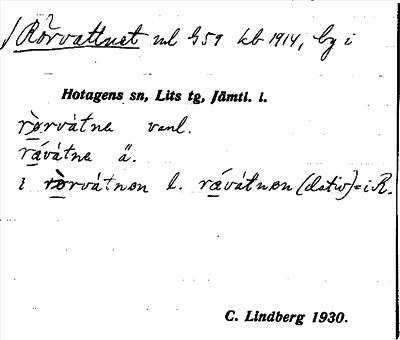 / Rörvattnet ml G 59 kb 1914, by i
Hotagens sn, Lits tg, Jämtl. l.
rørvátnə vanl.
rǽvátnə ä.
i rørvátnən l. rǽvátnən (dativ) = i R.
C. Lindberg 1930.